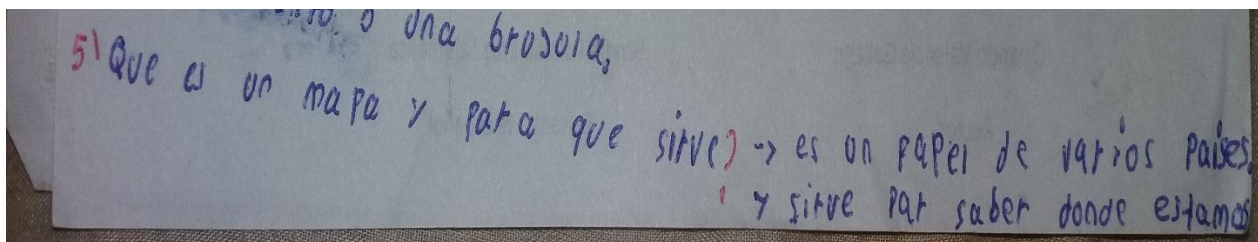 o una brujula,
5) Que es un mapa y para que sirve? -> es un papel de varios paises.
y sirve par saber donde estamos